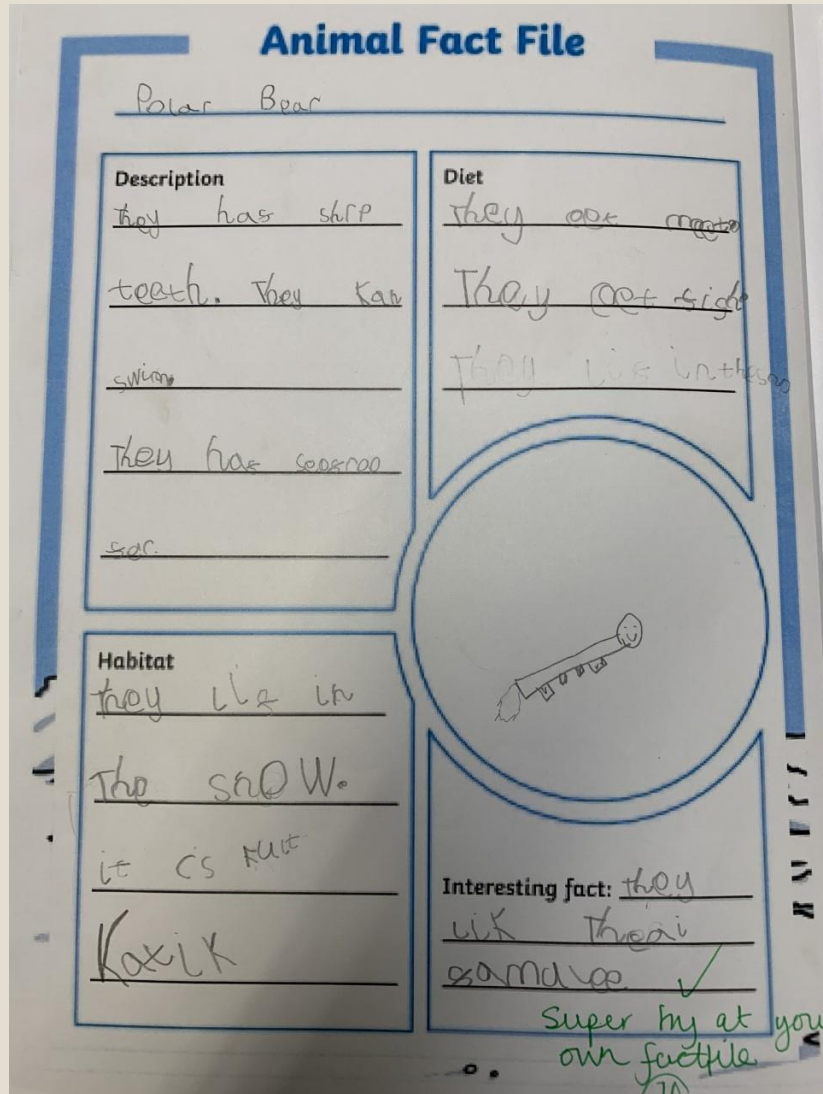 Animal Fact File
Polar Bear
Description
they has shrp
teeth. They Kan
swim
They has
Diet
They eet
They eet
They in the
Habitat
they in
The snoW.
it is
Interesting fact: they
lik Theai
Super try at your
own factfile